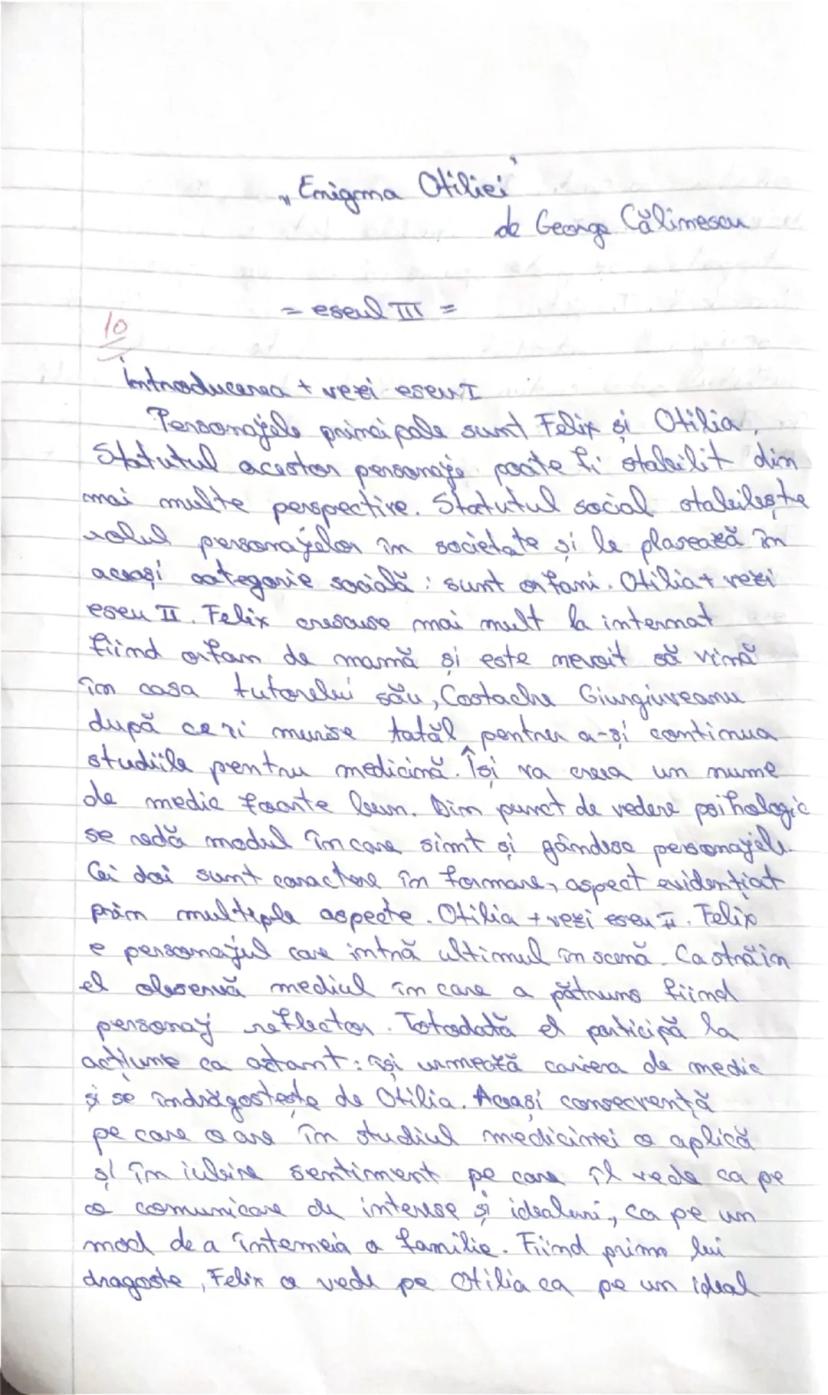 „Enigma Otiliei”
de George Călinescu
= eseul III =
10
Introducerea + vezi eseu I
Personajele principale sunt Felix și Otilia.
Statutul acestor personaje poate fi stabilit din
mai multe perspective. Statutul social stabilește
rolul personajelor în societate și le plasează în
aceași categorie socială: sunt orfani. Otilia + vezi
eseu II. Felix crescuse mai mult la internat
fiind orfan de mamă și este nevoit să vină
în casa tutorelui său, Costache Giurgiuveanu
după ce îi murise tatăl pentru a-și continua
studiile pentru medicină. Își va crea un nume
de medic foarte bun. Din punct de vedere psihologic
se redă modul în care simt și gândesc personajele.
Cei doi sunt caractere în formare, aspect evidențiat
prin multiple aspecte. Otilia + vezi eseu II. Felix
e personajul care intră ultimul în scenă. Ca străin
el observă mediul în care a pătruns fiind
personaj reflector. Totodată el participă la
acțiune ca actant: își urmează cariera de medic
și se îndrăgostește de Otilia. Aceași consecvență
pe care o are în studiul medicinei o aplică
și în iubire sentiment pe care îl vede ca pe
o comunicare de interese și idealuri, ca pe un
mod de a întemeia o familie. Fiind prima lui
dragoste, Felix o vede pe Otilia ca pe un ideal